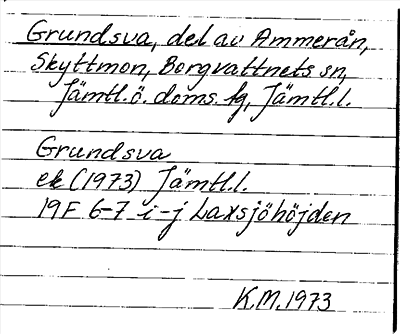 Grundsva, del av Ammerån,
Skyttmon, Borgvattnets sn,
Jämtl.ö. doms. fg, Jämtl.l.
Grundsva
ek (1973) Jämtl.l.
19F 6-7 i-j Laxsjöhöjden
K.M.1973